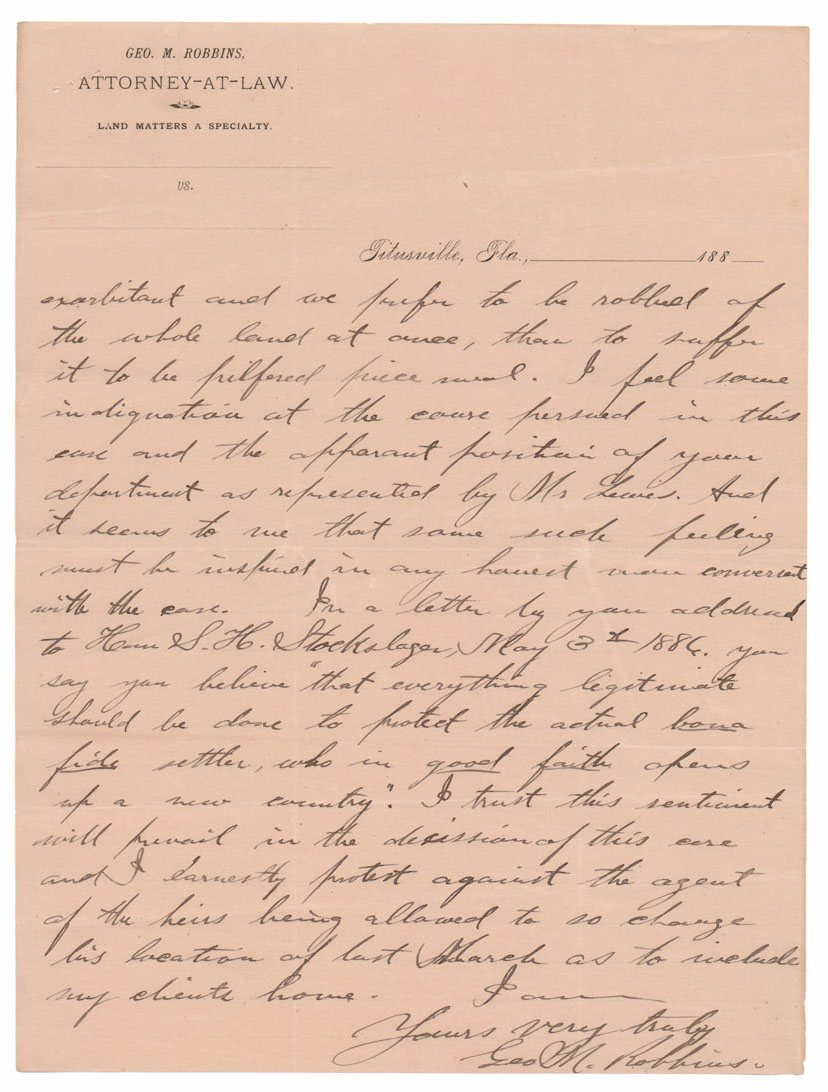 GEO. M. ROBBINS,
ATTORNEY-AT-LAW.
LAND MATTERS A SPECIALTY.
vs.
Titusville, Fla., 188
exorbitant and we prefer to be robbed of
the whole land at once, than to suffer
it to be pilfered piece meal. I feel some
indignation at the course persued in this
case and the apparant position of your
department as represented by Mr Lewis. And
it seems to me that some such feeling
must be inspired in any honest man conversent
with the case. In a letter by you addressed
to Hon S. H. Stockslager, May 3d 1886. you
say you believe "that everything legitimate
should be done to protect the actual bona
fide settler, who in good faith opens
up a new country". I trust this sentiment
will prevail in the decission of this case
and I earnestly protest against the agent
of the heirs being allowed to so change
his location of last March as to include
my clients home. I am
Yours very truly
Geo M. Robbins.